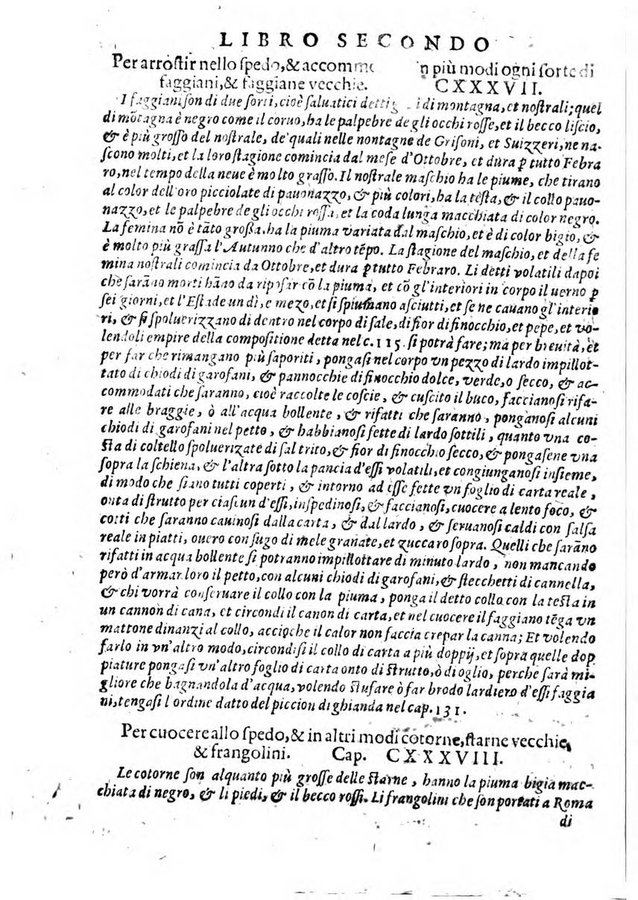 LIBRO SECONDO
Per arrostir nello spedo, & accomm n più modi ogni sorte di
faggiani, & faggiane vecchie. CXXXVII.
I faggiani son di due sorti, cioè saluatici detti g i di montagna, et nostrali; quel
di mōtagna è negro come il coruo, ha le palpebre degli occhi rosse, et il becco liscio,
& è più grosso del nostrale, de'quali nelle nontagne de Grisoni, et Suizzeri, ne na-
scono molti, et la loro stagione comincia dal mese d'Ottobre, et dura ꝑ tutto Febra
ro, nel tempo della neue è molto grasso. Il nostrale maschio ha le piume, che tirano
al color dell'oro picciolate di pauonazzo, & più colori, ha la testa, & il collo pauo-
nazzo, et le palpebre de gli occhi rossa, et la coda lunga macchiata di color negro.
La femina nō è tāto großa, ha la piuma variata dal maschio, et è di color bigio, &
è molto più grassa l'Autunno che d'altro tēpo. La stagione del maschio, et della fe
mina nostrali comincia da Ottobre, et dura ꝑ tutto Febraro. Li detti volatili dapoi
che sarāno morti hāno da riposar cō la piuma, et cō gl'interiori in corpo il uerno ꝑ
sei giorni, et l'Estade un dì, e mezo, et si spiumano asciutti, et se ne cauano gl'interio
ri, & si spoluerizzano di dentro nel corpo di sale, di fior di finocchio, et pepe, et vo-
lendoli empire della compositione detta nel c. 115. si potrà fare; ma per breuità, et
per far che rimangano più saporiti, pongasi nel corpo un pezzo di lardo impillot-
tato di chiodi di garofani, & pannocchie di finocchio dolce, verde, o secco, & ac-
commodati che saranno, cioè raccolte le coscie, & cuscito il buco, faccianosi rifa-
re alle braggie, ò all'acqua bollente, & rifatti che saranno, ponganosi alcuni
chiodi di garofani nel petto, & habbianosi fette di lardo sottili, quanto vna co-
sta di coltello spoluerizate di sal trito, & fior di finocchio secco, & pongasene vna
sopra la schiena, & l'altra sotto la pancia d'essi volatili, et congiunganosi insieme,
di modo che siano tutti coperti, & intorno ad esse fette vn foglio di carta reale,
onta di strutto per ciascun d'essi, inspedinosi, & faccianosi, cuocere a lento foco, &
cotti che saranno cauinosi dalla carta, & dal lardo, & seruanosi caldi con salsa
reale in piatti, ouero con sugo di mele granate, et zuccaro sopra. Quelli che sarāno
rifatti in acqua bollente si potranno impillottare di minuto lardo, non mancando
però d'armar loro il petto, con alcuni chiodi di garofani, & stecchetti di cannella,
& chi vorrà conseruare il collo con la piuma, ponga il detto collo con la testa in
un cannon di cana, et circondi il canon di carta, et nel cuocere il faggiano tēga un
mattone dinanzi al collo, acciqche il calor non faccia crepar la canna; Et volendo
farlo in vn'altro modo, circondisi il collo di carta a più doppij, et sopra quelle dop
piature pongasi vn'altro foglio di carta onto di strutto, ò di oglio, perche sarà mi-
gliore che bagnandola d'acqua, volendo stufare ò far brodo lardiero d'essi faggia
ni, tengasi l'ordine datto del piccion di ghianda nel cap. 131.
Per cuocere allo spedo, & in altri modi cotorne, starne vecchie,
& frangolini. Cap. CXXXVIII.
Le cotorne son alquanto più grosse delle starne, hanno la piuma bigia mac-
chiata di negro, & li piedi, & il becco rossi. Li frangolini che son portati a Roma
di